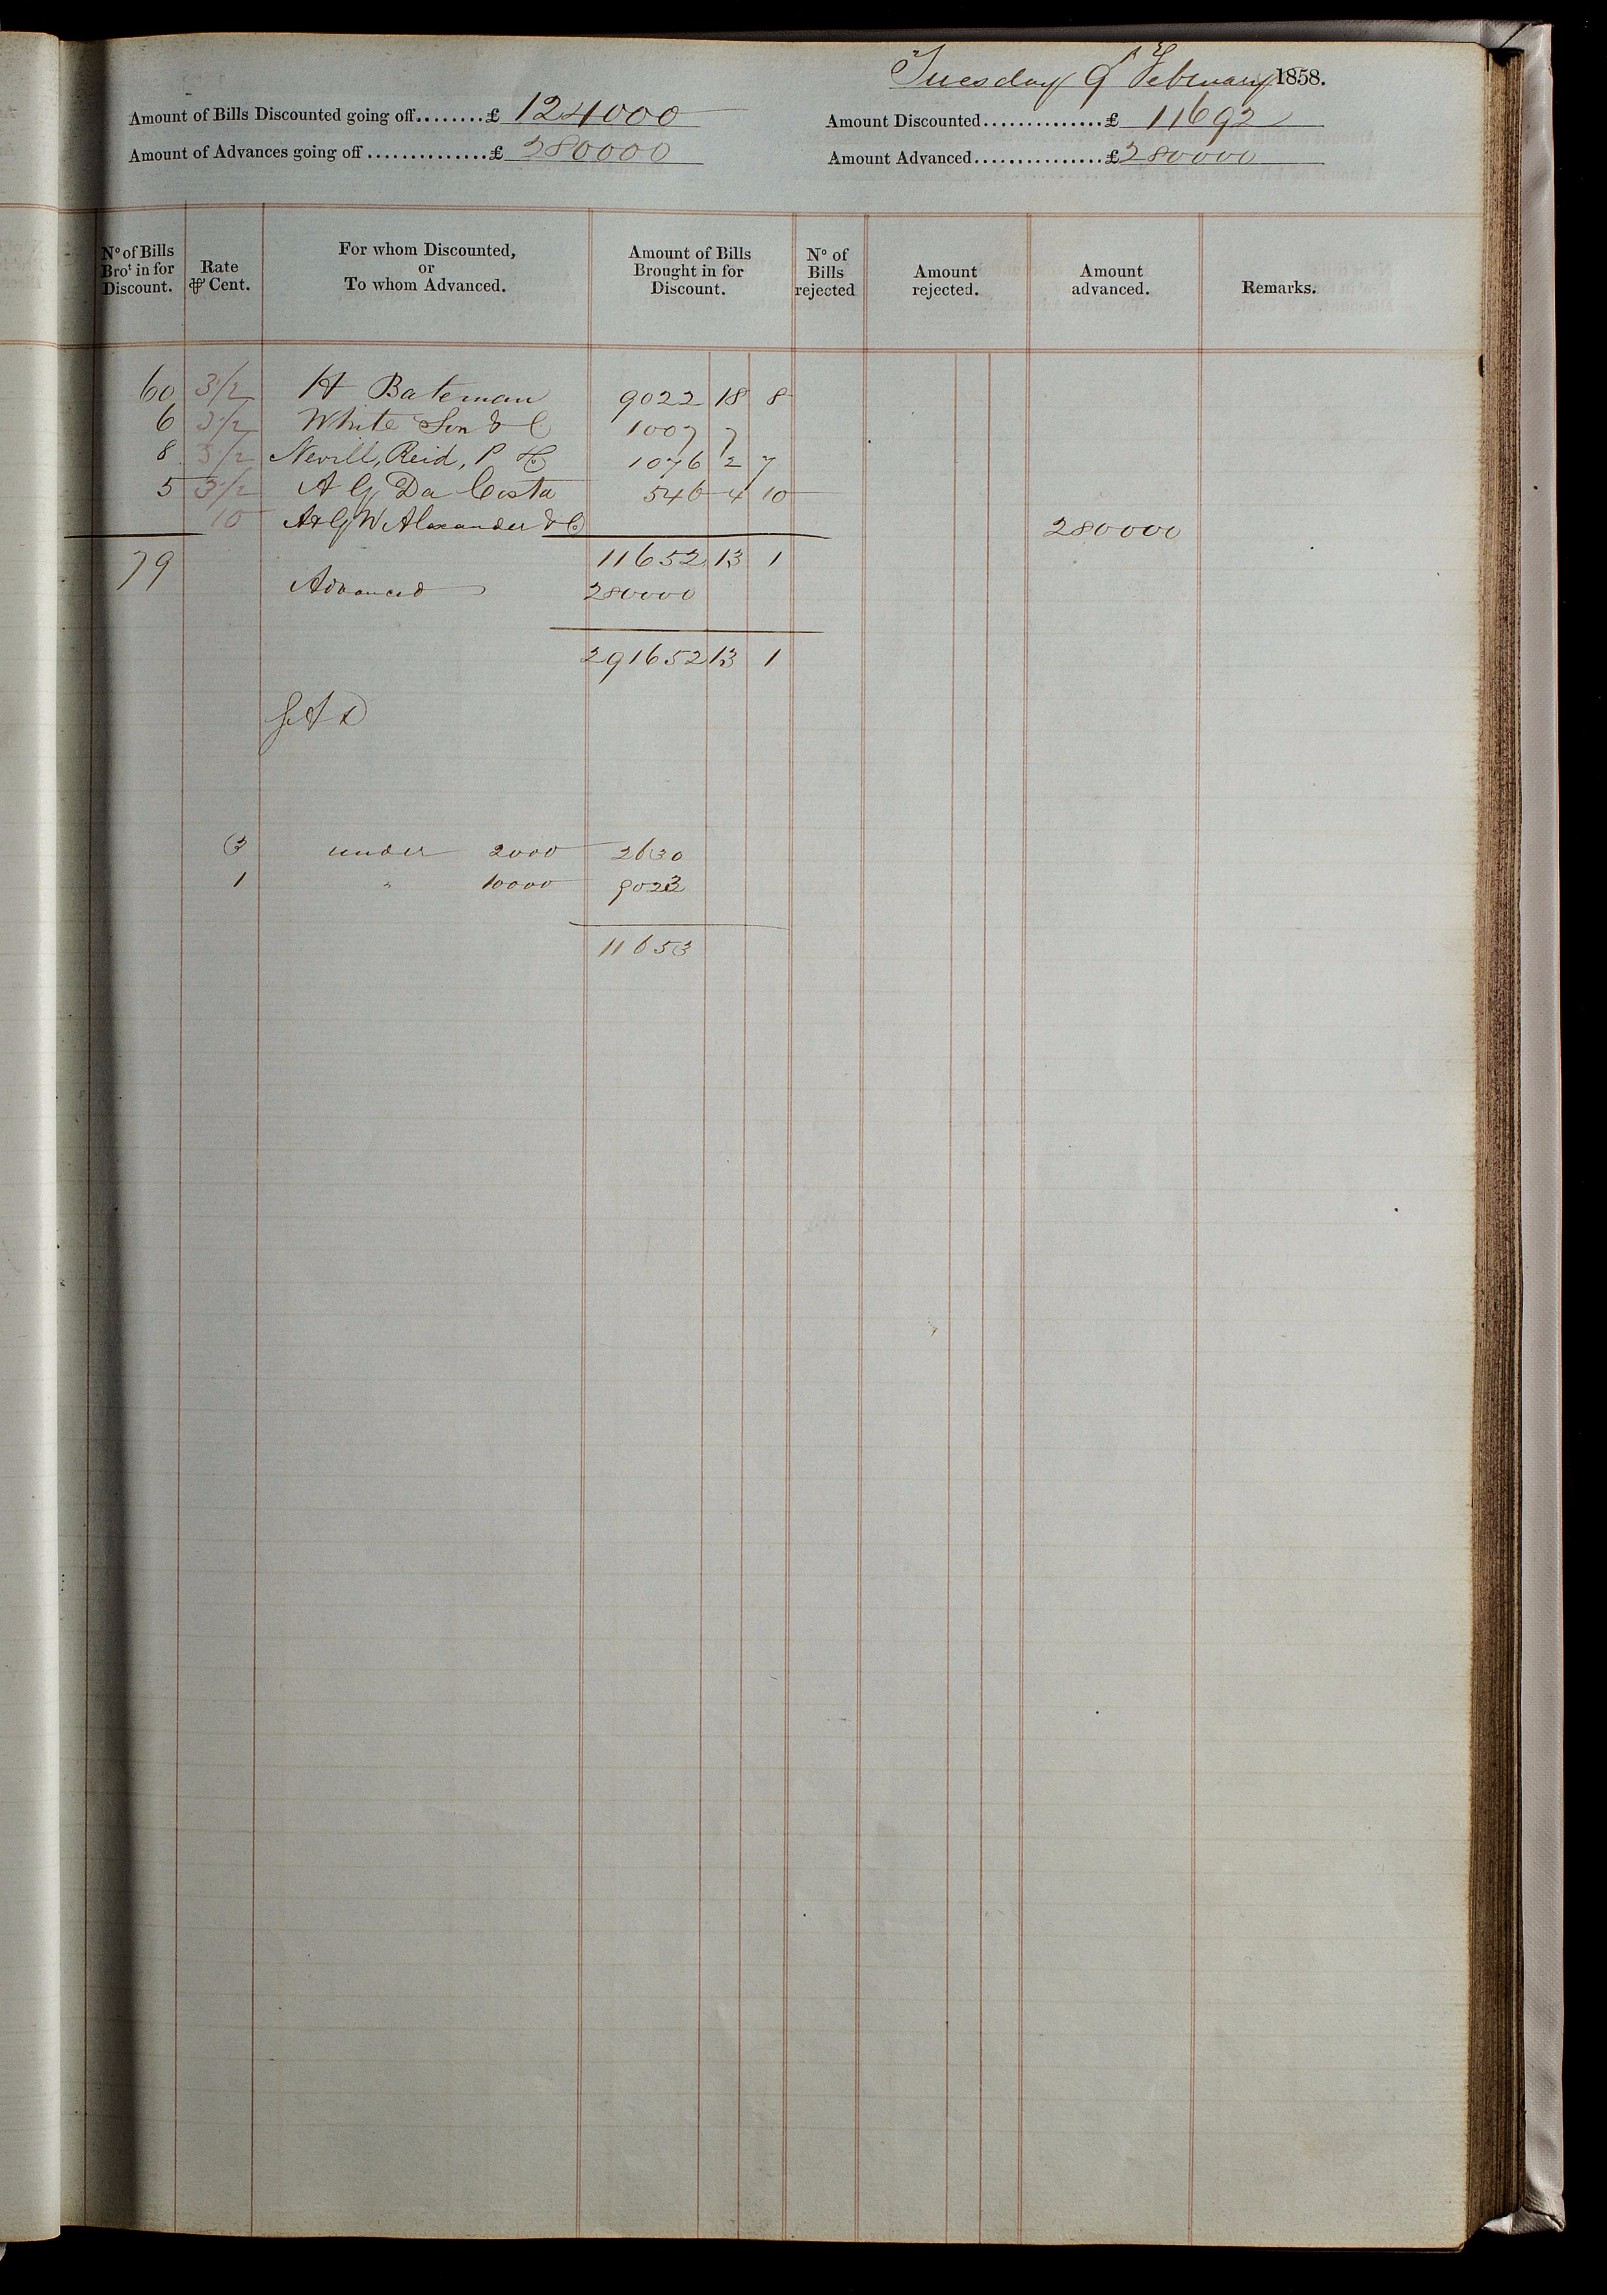 Tuesday 9 February 1858.
Amount of Bills Discounted going off........£ 124000
Amount Discounted..............£ 11692
Amount of Advances going off..............£ 280000
Amount Advanced...............£ 280000
Nº of Bills Broᵗ in for Discount.
Rate ⅌ Cent.
For whom Discounted, or To whom Advanced.
Amount of Bills Brought in for Discount.
Nº of Bills rejected
Amount rejected.
Amount advanced.
Remarks.
60 3½ H Bateman 9022 18 8
6 3½ White Son & Co 1007 7
8 3½ Nevill, Reid, & Co 1076 2 7
5 3½ A G Da Costa 546 4 10
10 A & G W Alexander & Co 280000
79 11652 13 1
Advanced 280000
291652 13 1
3 under 2000 2630
1 " 10000 9023
11653